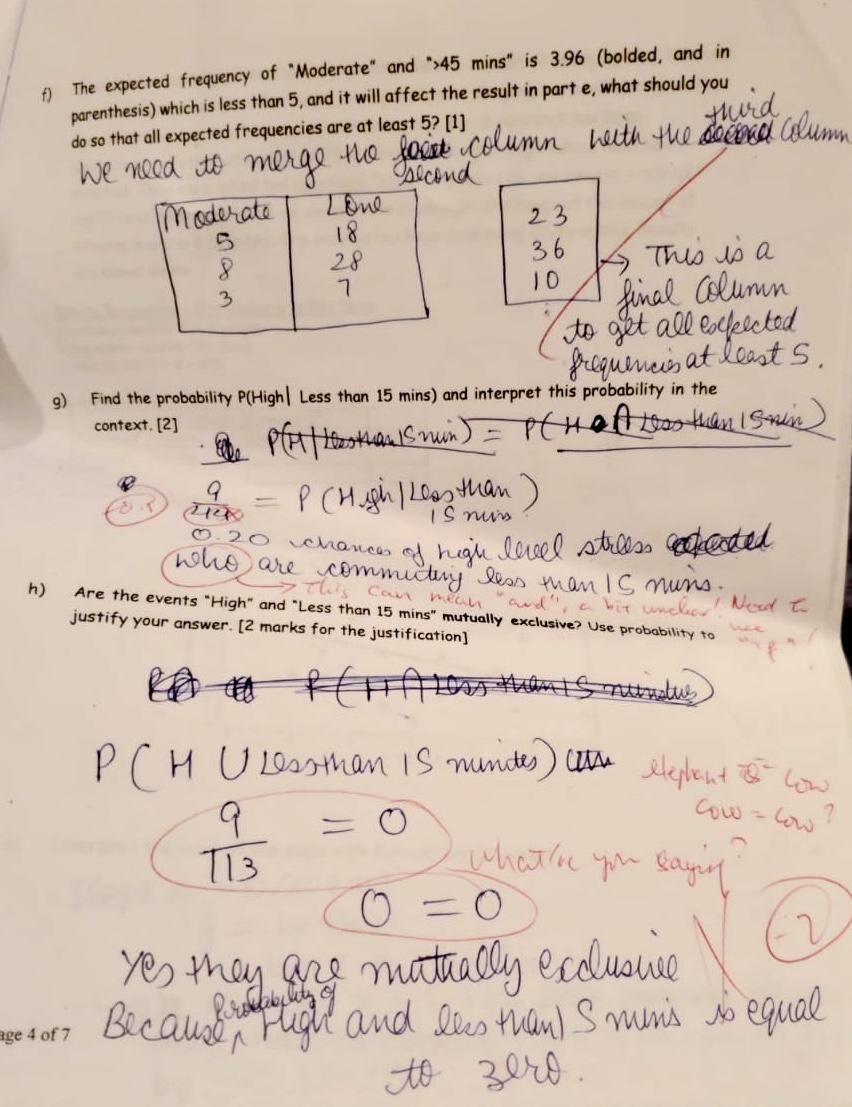 f) The expected frequency of "Moderate" and ">45 mins" is 3.96 (bolded, and in
parenthesis) which is less than 5, and it will affect the result in part e, what should you
do so that all expected frequencies are at least 5? [1]
third
We need to merge the column with the column
second
Moderate Low
5 18
8 28
3 7
23
36
10
→ This is a
final column
to get all expected
frequencies at least 5.
g) Find the probability P(High| Less than 15 mins) and interpret this probability in the
context. [2]
P(H|Less than 15 min) = P(H ∩ Less than 15 min)
9 = P(High|Less than
15 mins)
0.20 chances of high level stress
who are commuting less than 15 mins.
This can mean "and", a bit unclear! Need to
use "if"!
h) Are the events "High" and "Less than 15 mins" mutually exclusive? Use probability to
justify your answer. [2 marks for the justification]
P(H ∩ Less than 15 minutes)
P(H U Less than 15 minutes)
elephant = cow
cow = cow?
9 = 0
113
What're you saying?
0 = 0
-2
Yes they are mutually exclusive
probability of
Because High and less than 15 mins is equal
to zero.
age 4 of 7